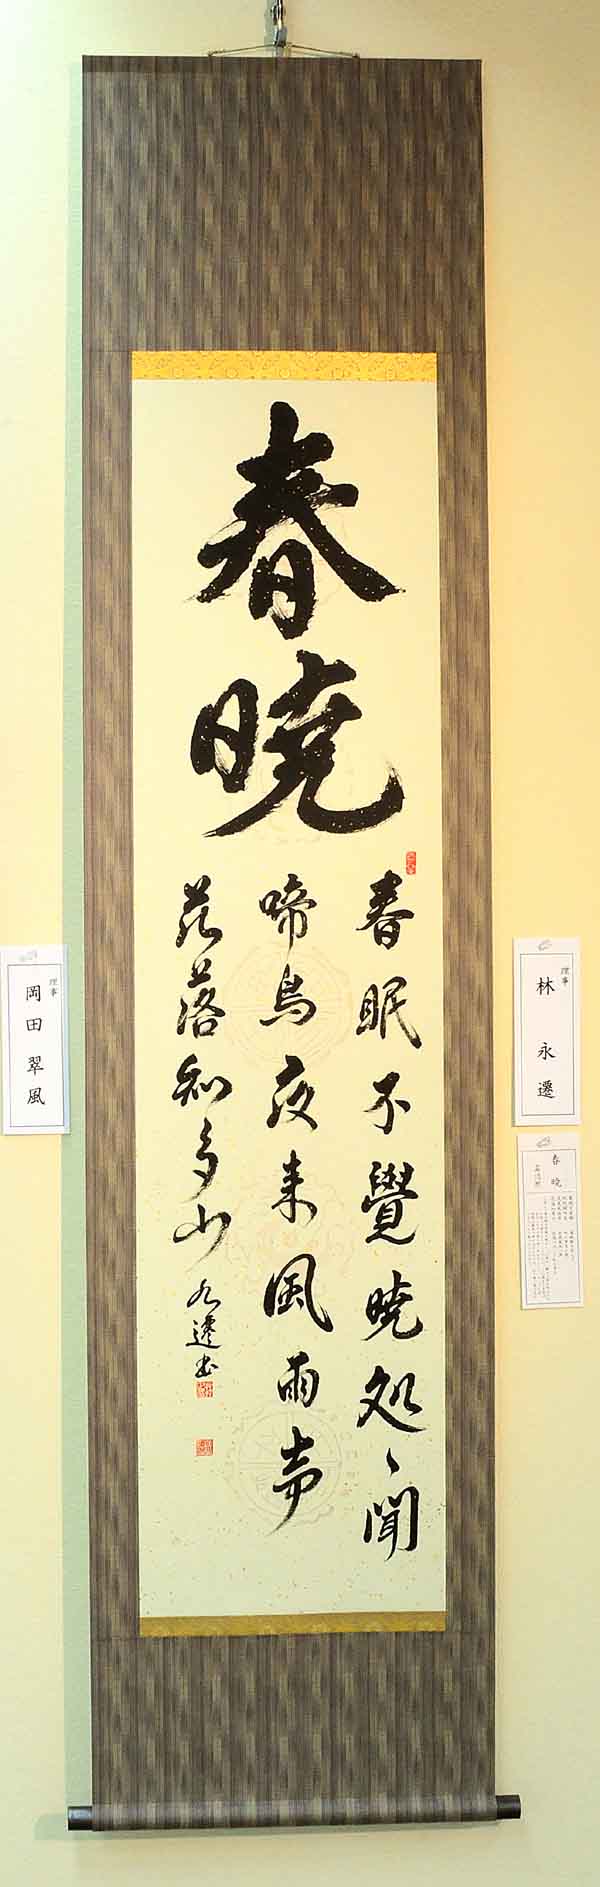 春暁
春眠不覺暁処々聞
啼鳥夜来風雨声
花落知多少 永遷書
理事
林 永遷
春暁
孟浩然
理事
岡田翠風